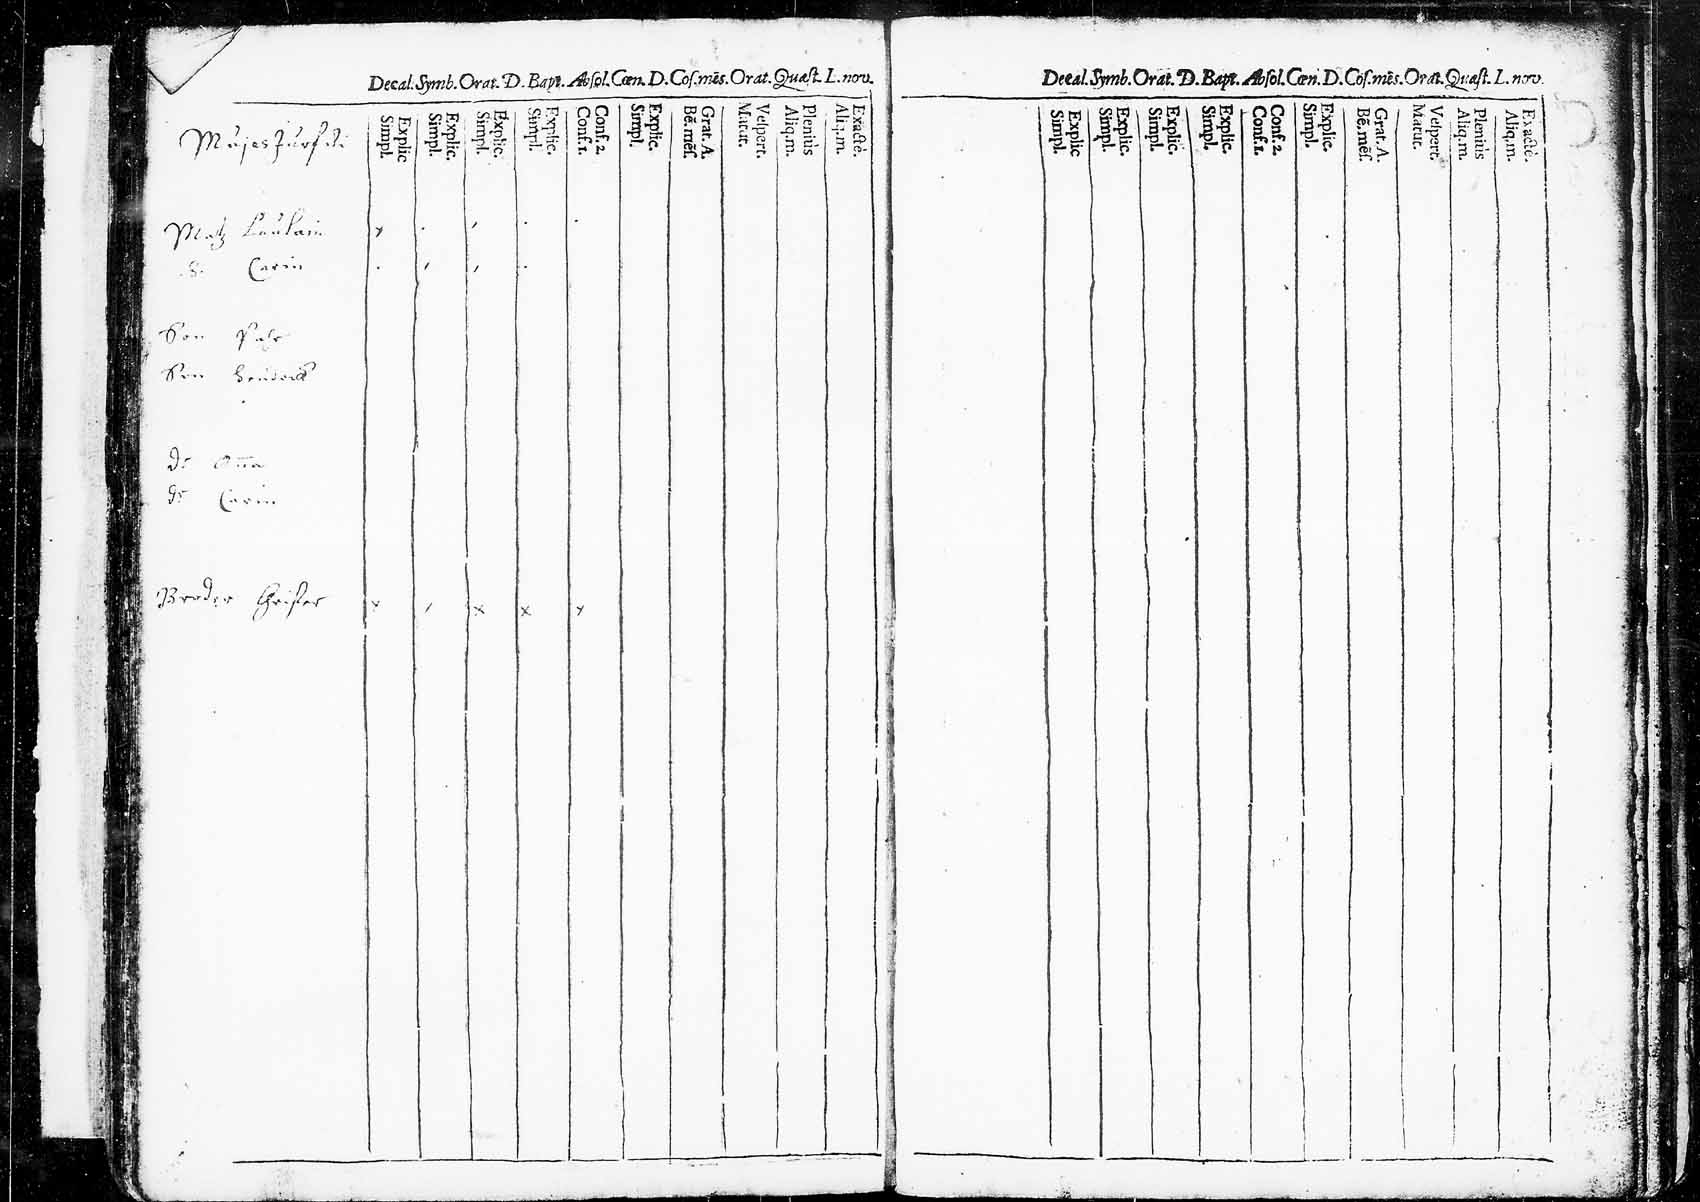 Decal. Symb. Orat. D. Bapt. Absol. Cœn. D. Cos. mēs. Orat. Quæst. L. nov.
Explic Simpl.
Explic. Simpl.
Explic. Simpl.
Explic. Simpl.
Conf. 2. Conf. 1.
Explic. Simpl.
Grat. A. Bē. mēs.
Vespert. Matut.
Pleniùs Aliq. m.
Exactè. Aliq. m.
Matz
Carin
Son
Son
d:r Aña
d:r Carin
Broder Christer
Decal. Symb. Orat. D. Bapt. Absol. Cœn. D. Cos. mēs. Orat. Quæst. L. nov.
Explic Simpl.
Explic. Simpl.
Explic. Simpl.
Explic. Simpl.
Conf. 2. Conf. 1.
Explic. Simpl.
Grat. A. Bē. mēs.
Vespert. Matut.
Pleniùs Aliq. m.
Exactè. Aliq. m.